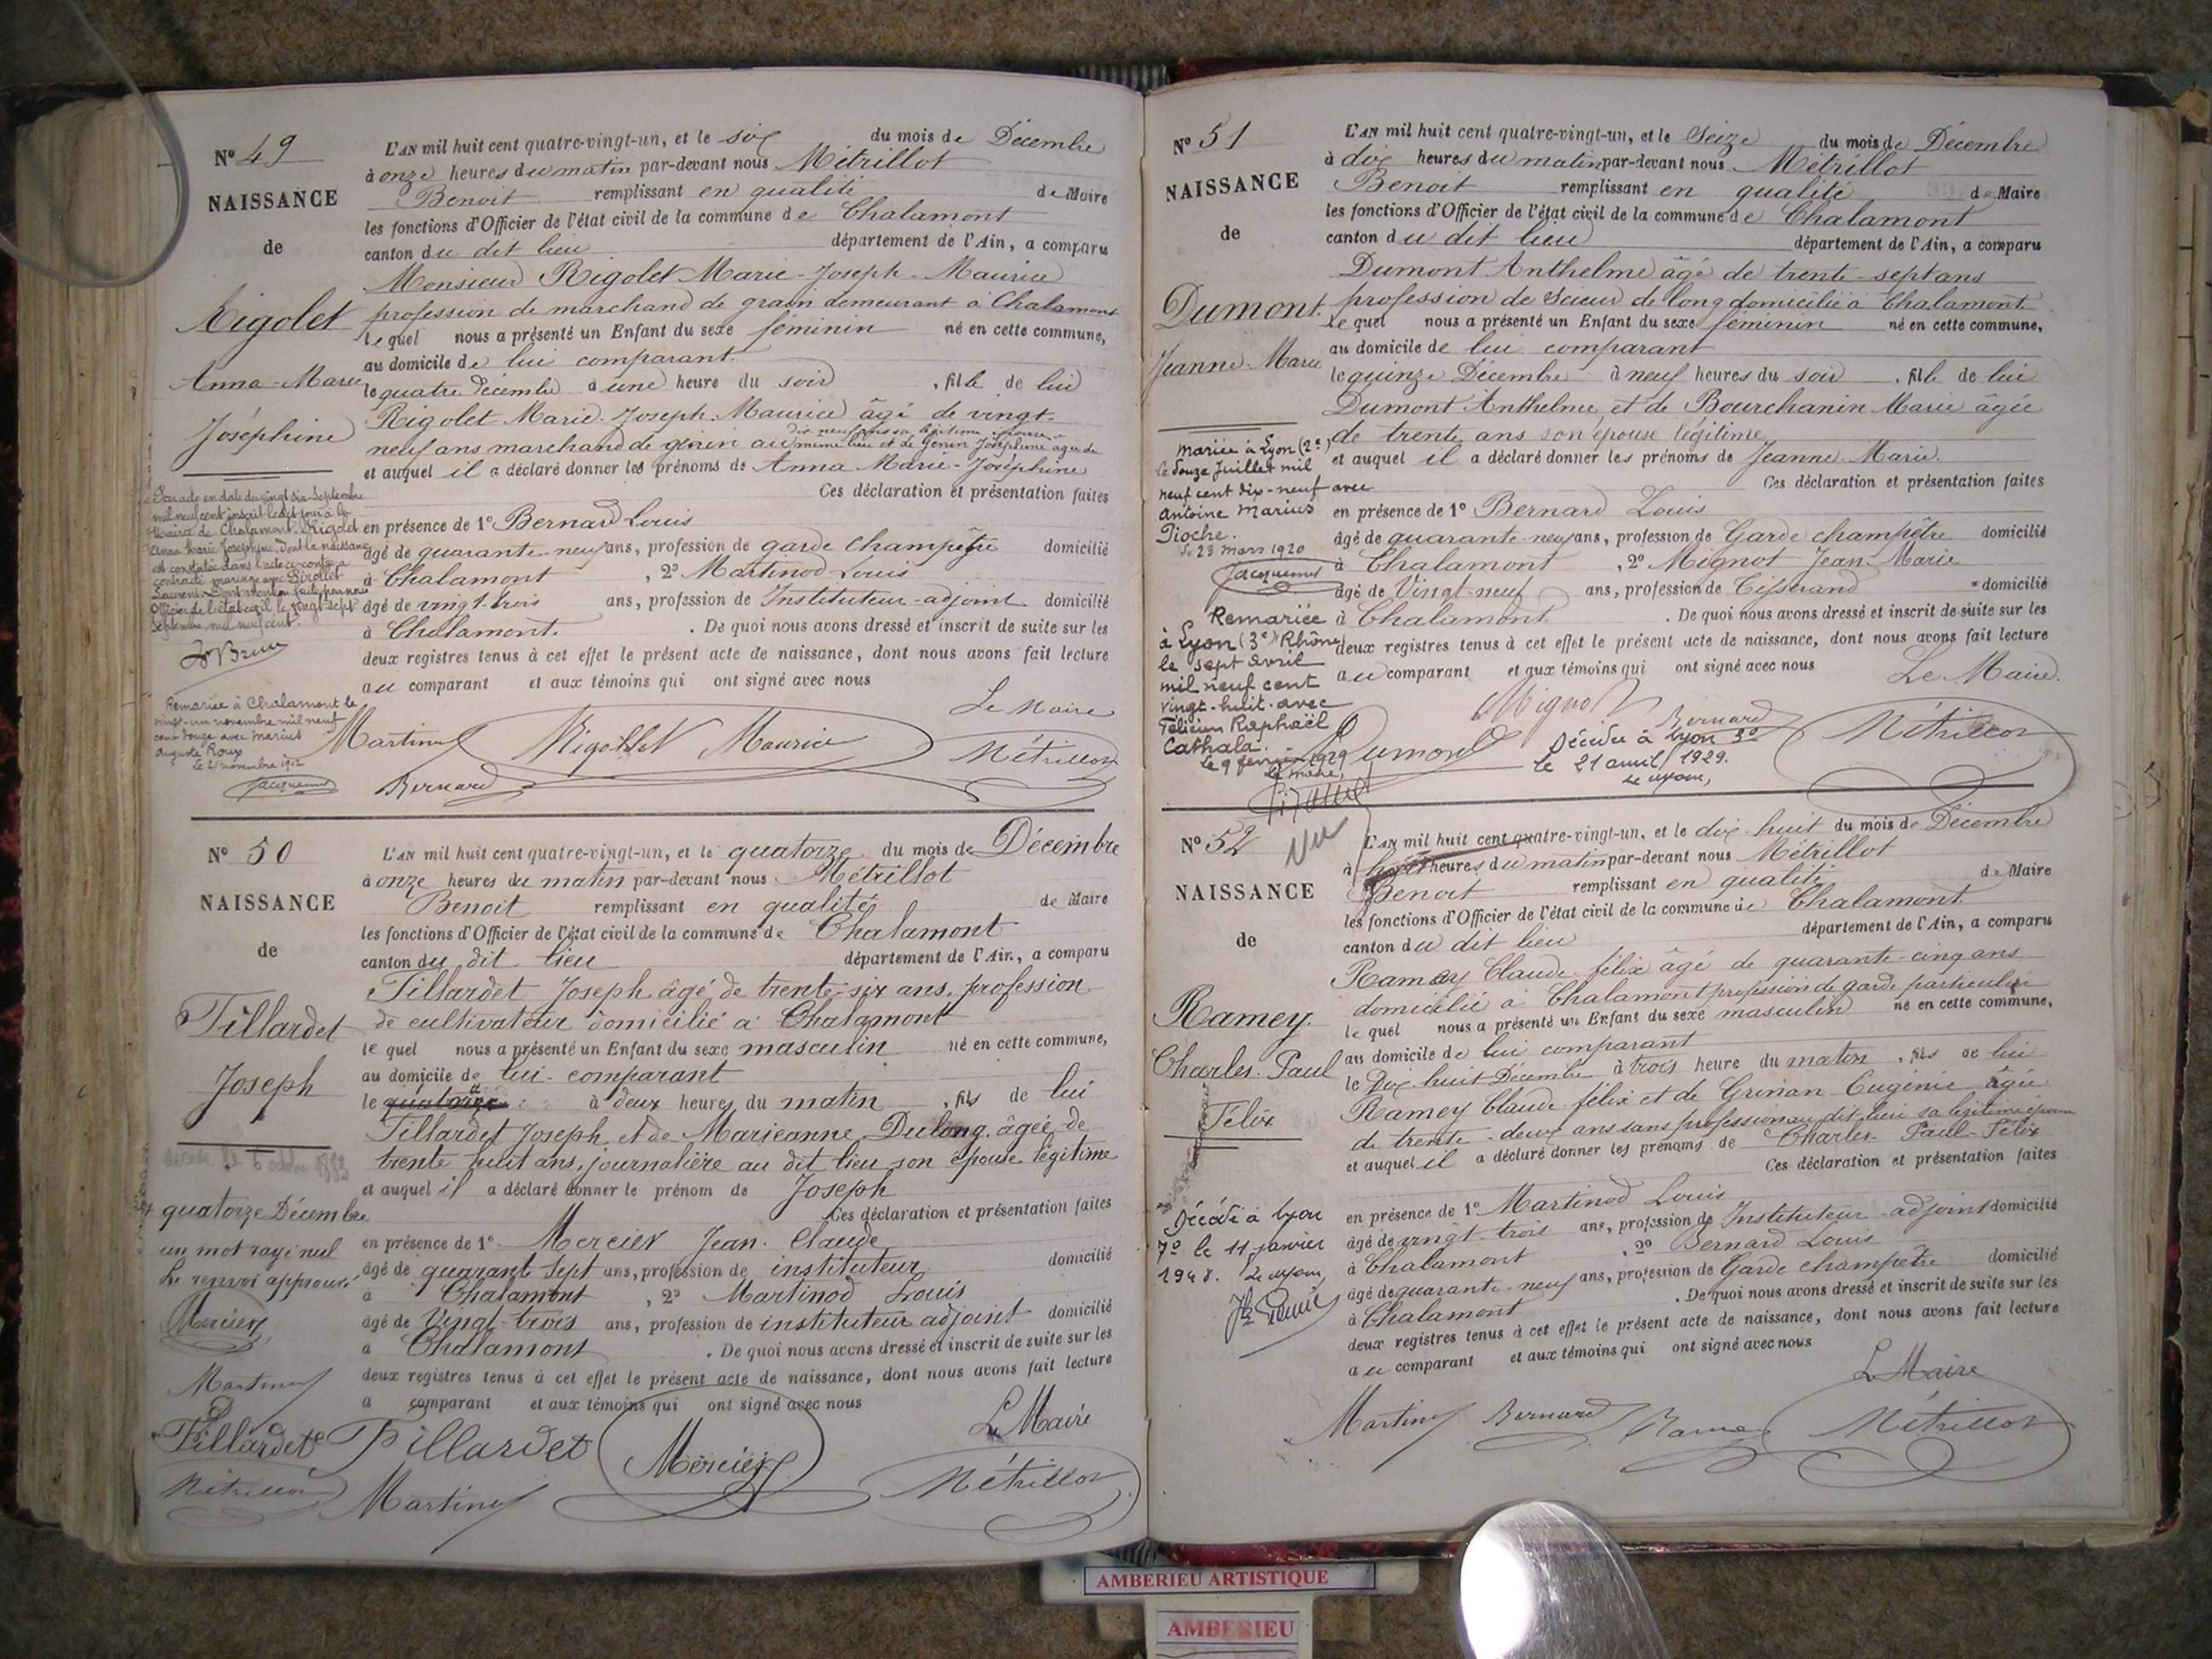 N° 49
NAISSANCE
de
Rigolet
Anna-Marie
Joséphine
L'AN mil huit cent quatre-vingt-un, et le six du mois de Décembre
à onze heures du matin par-devant nous Métrillot
Benoit remplissant en qualité de Maire
les fonctions d'Officier de l'état civil de la commune de Chalamont
canton du dit lieu département de l'Ain, a comparu
Monsieur Rigolet Marie-Joseph-Maurice
profession de marchand de grain demeurant à Chalamont
lequel nous a présenté un Enfant du sexe féminin né en cette commune,
au domicile de lui comparant
le quatre Décembre à une heure du soir, fille de lui
Rigolet Marie-Joseph-Maurice âgé de vingt-
dix neuf ans sa légitime épouse
neuf ans marchand de grain au même lieu et de Genin Joséphine agée de
et auquel il a déclaré donner les prénoms de Anna Marie-Joséphine
Ces déclaration et présentation faites
en présence de 1° Bernard Louis
âgé de quarante-neuf ans, profession de garde champêtre domicilié
à Chalamont, 2° Martinod Louis
âgé de vingt-trois ans, profession de Instituteur-adjoint domicilié
à Chalamont. De quoi nous avons dressé et inscrit de suite sur les
deux registres tenus à cet effet le présent acte de naissance, dont nous avons fait lecture
au comparant et aux témoins qui ont signé avec nous
Le Maire
Martinod Rigollet Maurice Métrillot
Bernard
Par acte en date du vingt six Septembre
mil neuf cent inscrit ledit jour à la
Mairie de Chalamont, Rigolet
Anna Marie Joséphine, dont la naissance
est constatée dans l'acte ci-contre a
contracté mariage avec Birollet
Laurent. Dont mention faite par nous
Officier de l'état civil le vingt-sept
Septembre mil neuf cent.
Remariée à Chalamont le
vingt-un novembre mil neuf
cent douze avec Marius
Auguste Roux
Le 21 novembre 1912
Jacquemet
N° 50
NAISSANCE
de
Tillardet
Joseph
L'AN mil huit cent quatre-vingt-un, et le quatorze du mois de Décembre
à onze heures du matin par-devant nous Métrillot
Benoit remplissant en qualité de Maire
les fonctions d'Officier de l'état civil de la commune de Chalamont
canton du dit lieu département de l'Ain, a comparu
Tillardet Joseph âgé de trente-six ans, profession
de cultivateur domicilié à Chalamont
lequel nous a présenté un Enfant du sexe masculin né en cette commune,
au domicile de lui-comparant
le quatorze à deux heures du matin, fils de lui
Tillardet Joseph et de Marieanne Dulong âgée de
trente huit ans, journalière au dit lieu son épouse légitime
et auquel il a déclaré donner le prénom de Joseph
Ces déclaration et présentation faites
en présence de 1° Mercier Jean-Claude
âgé de quarant sept ans, profession de instituteur domicilié
à Chalamont, 2° Martinod Louis
âgé de Vingt-trois ans, profession de instituteur adjoint domicilié
à Chalamont. De quoi nous avons dressé et inscrit de suite sur les
deux registres tenus à cet effet le présent acte de naissance, dont nous avons fait lecture
a comparant et aux témoins qui ont signé avec nous
Le Maire
quatorze Décembre
un mot rayé nul
Le renvoi approuvé
Mercier
Martinod
Tillardet Tillardet Mercier
Métrillot Martinod Métrillot
N° 51
NAISSANCE
de
Dumont
Jeanne-Marie
L'AN mil huit cent quatre-vingt-un, et le Seize du mois de Décembre
à dix heures du matin par-devant nous Métrillot
Benoit remplissant en qualité de Maire
les fonctions d'Officier de l'état civil de la commune de Chalamont
canton du dit lieu département de l'Ain, a comparu
Dumont Anthelme âgé de trente-sept ans
profession de Scieur de long domicilié à Chalamont
lequel nous a présenté un Enfant du sexe féminin né en cette commune,
au domicile de lui comparant
le quinze Décembre à neuf heures du soir, fille de lui
Dumont Anthelme et de Bourchanin Marie âgée
de trente ans son épouse légitime
et auquel il a déclaré donner les prénoms de Jeanne-Marie.
Ces déclaration et présentation faites
en présence de 1° Bernard Louis
âgé de quarante-neuf ans, profession de Garde champêtre domicilié
à Chalamont, 2° Mignot Jean-Marie
âgé de Vingt-neuf ans, profession de Tisserand domicilié
à Chalamont. De quoi nous avons dressé et inscrit de suite sur les
deux registres tenus à cet effet le présent acte de naissance, dont nous avons fait lecture
au comparant et aux témoins qui ont signé avec nous
Le Maire
Mignot Bernard Métrillot
Dumont
Décédée à Lyon 3e
le 21 avril 1929.
Le Maire,
Mariée à Lyon (2e)
le douze Juillet mil
neuf cent dix-neuf avec
Antoine Marius
Pioche.
Le 23 mars 1920
Jacquemet
Remariée
à Lyon (3e) Rhône
le sept avril
mil neuf cent
vingt-huit avec
Félicien Raphaël
Cathala.
Le 9 février 1929
Le maire,
N° 52
Vu
NAISSANCE
de
Ramey
Charles-Paul
Félix
L'AN mil huit cent quatre-vingt-un, et le dix-huit du mois de Décembre
à heures du matin par-devant nous Métrillot
Benoit remplissant en qualité de Maire
les fonctions d'Officier de l'état civil de la commune de Chalamont
canton du dit lieu département de l'Ain, a comparu
Ramey Claude-félix âgé de quarante-cinq ans
domicilié à Chalamont profession de garde particulier
lequel nous a présenté un Enfant du sexe masculin né en cette commune,
au domicile de lui comparant
le Dix-huit Décembre à trois heure du matin, fils de lui
Ramey Claude-félix et de Grinan Eugénie âgée
de trente-deux ans sans profession au dit lieu sa légitime épouse
et auquel il a déclaré donner les prénoms de Charles-Paul-Félix
Ces déclaration et présentation faites
en présence de 1° Martinod Louis
âgé de vingt-trois ans, profession de Instituteur-adjoint domicilié
à Chalamont, 2° Bernard Louis
âgé de quarante-neuf ans, profession de Garde champêtre domicilié
à Chalamont. De quoi nous avons dressé et inscrit de suite sur les
deux registres tenus à cet effet le présent acte de naissance, dont nous avons fait lecture
au comparant et aux témoins qui ont signé avec nous
Le Maire
Martinod Bernard Ramey Métrillot
Décédé à Lyon
7e le 11 janvier
1948. Le Maire,
AMBERIEU ARTISTIQUE
AMBERIEU